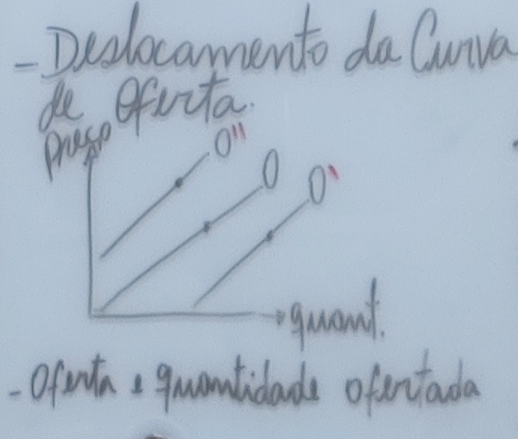 - Deslocamento da Curva
de Oferta.
Preço
O"
O
O'
quant.
- Oferta e quantidade ofertada